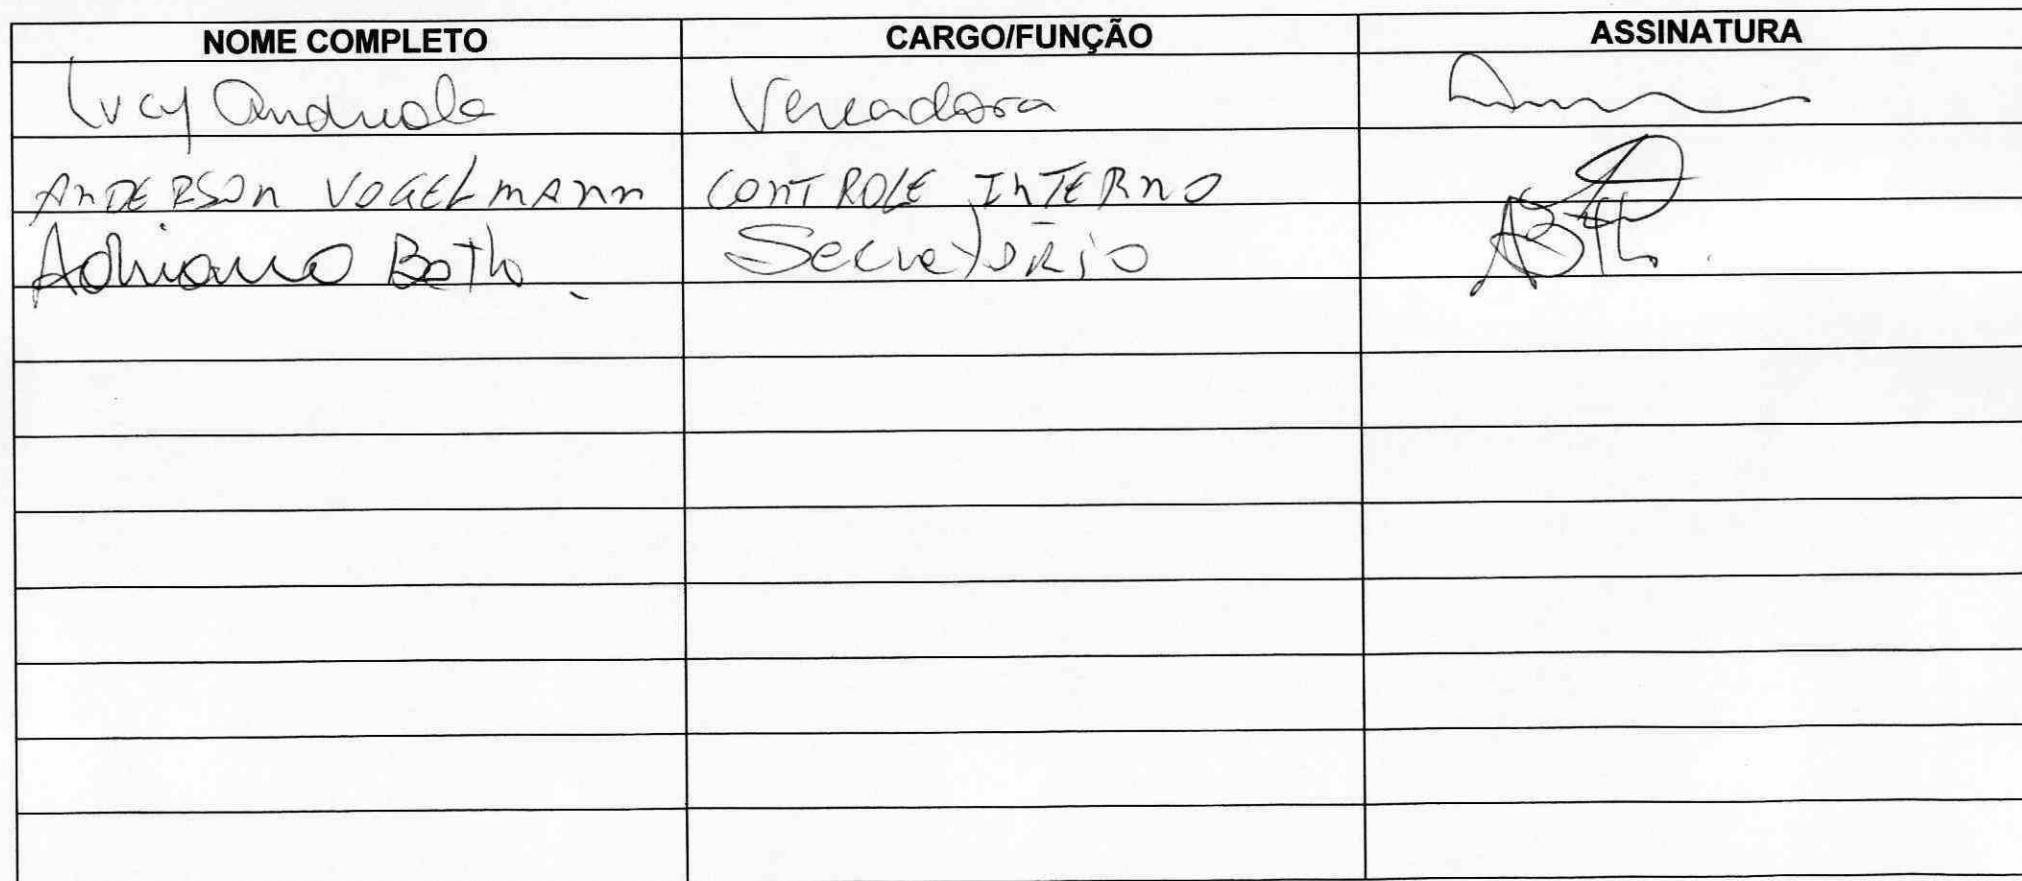 NOME COMPLETO CARGO/FUNÇÃO ASSINATURA
Lucy Vereadora
ANDERSON VOGELMANN CONTROLE INTERNO
Adriano Both. Secretário ABth.